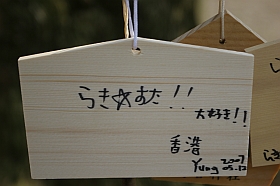 らき☆すた!!
大好き!!
香港
Yung 2007
05.12